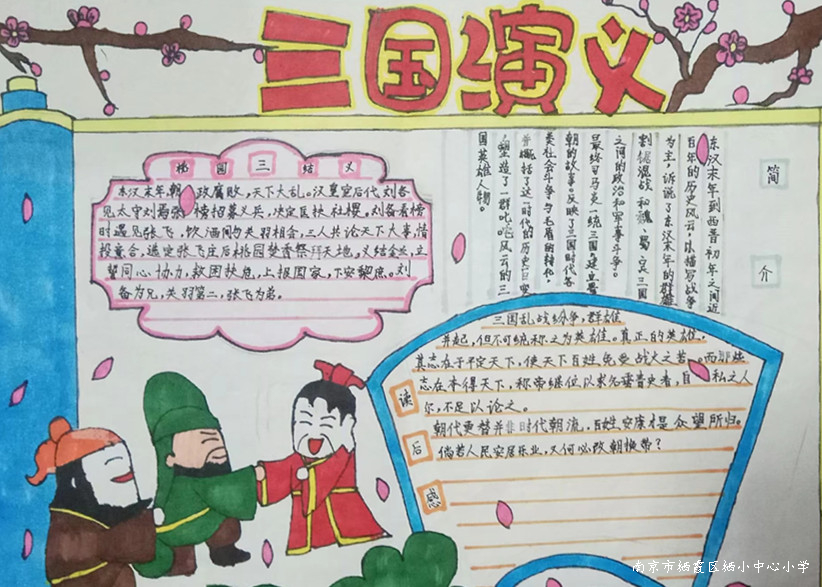 三国演义
桃园三结义
本汉末年朝政腐败,天下大乱。汉皇室后代刘备
见太守刘焉张榜招募义兵,决定匡扶社稷,刘备看榜
时遇见张飞,饮酒间与关羽相会,三人共论天下大事,情
投意合,遂定张飞庄后桃园焚香祭拜天地。义结金兰,立
誓同心协力,救困扶危,上报国家,下安黎庶。刘
备为兄,关羽第二,张飞为弟。
简介
东汉末年到西晋初年之间近
百年的历史风云,以描写战争
为主,诉说了东汉末年的群雄
割据混战和魏、蜀、吴三国
之间的政治和军事斗争。
最终司马炎一统三国,建立晋
朝的故事。反映了三国时代各
类社会斗争与矛盾的转化,
并概括了这一时代的历史巨变
,塑造了一群叱咤风云的三
国英雄人物。
读后感
三国乱战纷争,群雄
并起,但不可统称之为英雄。真正的英雄,
其志在于平定天下,使天下百姓免受战火之苦。而那些
志在本得天下,称帝继位以累先垂青史者,自私之人
尔,不足以论之。
朝代更替并非时代潮流,百姓安康才是众望所归。
倘若人民安居乐业,又何必改朝换带?
南京市栖霞区栖小中心小学